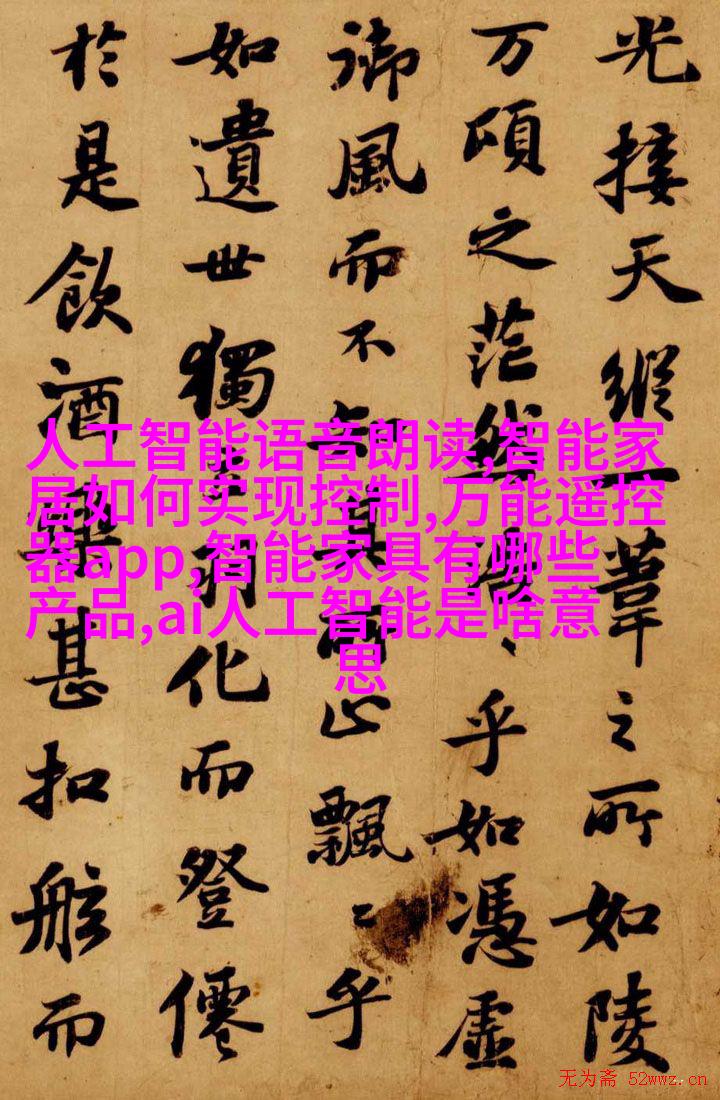 光接天縱一葦之所如陵
万頃之茫然浩〻乎如憑虛
御風而不知其所止飄〻乎
如遺世獨立羽化而登僊
於是飲酒樂甚扣舷而
人工智能语音朗读,智能家
居如何实现控制,万能遥控
器app,智能家具有哪些
产品,ai人工智能是啥意
思
无为斋 52wwz.cn